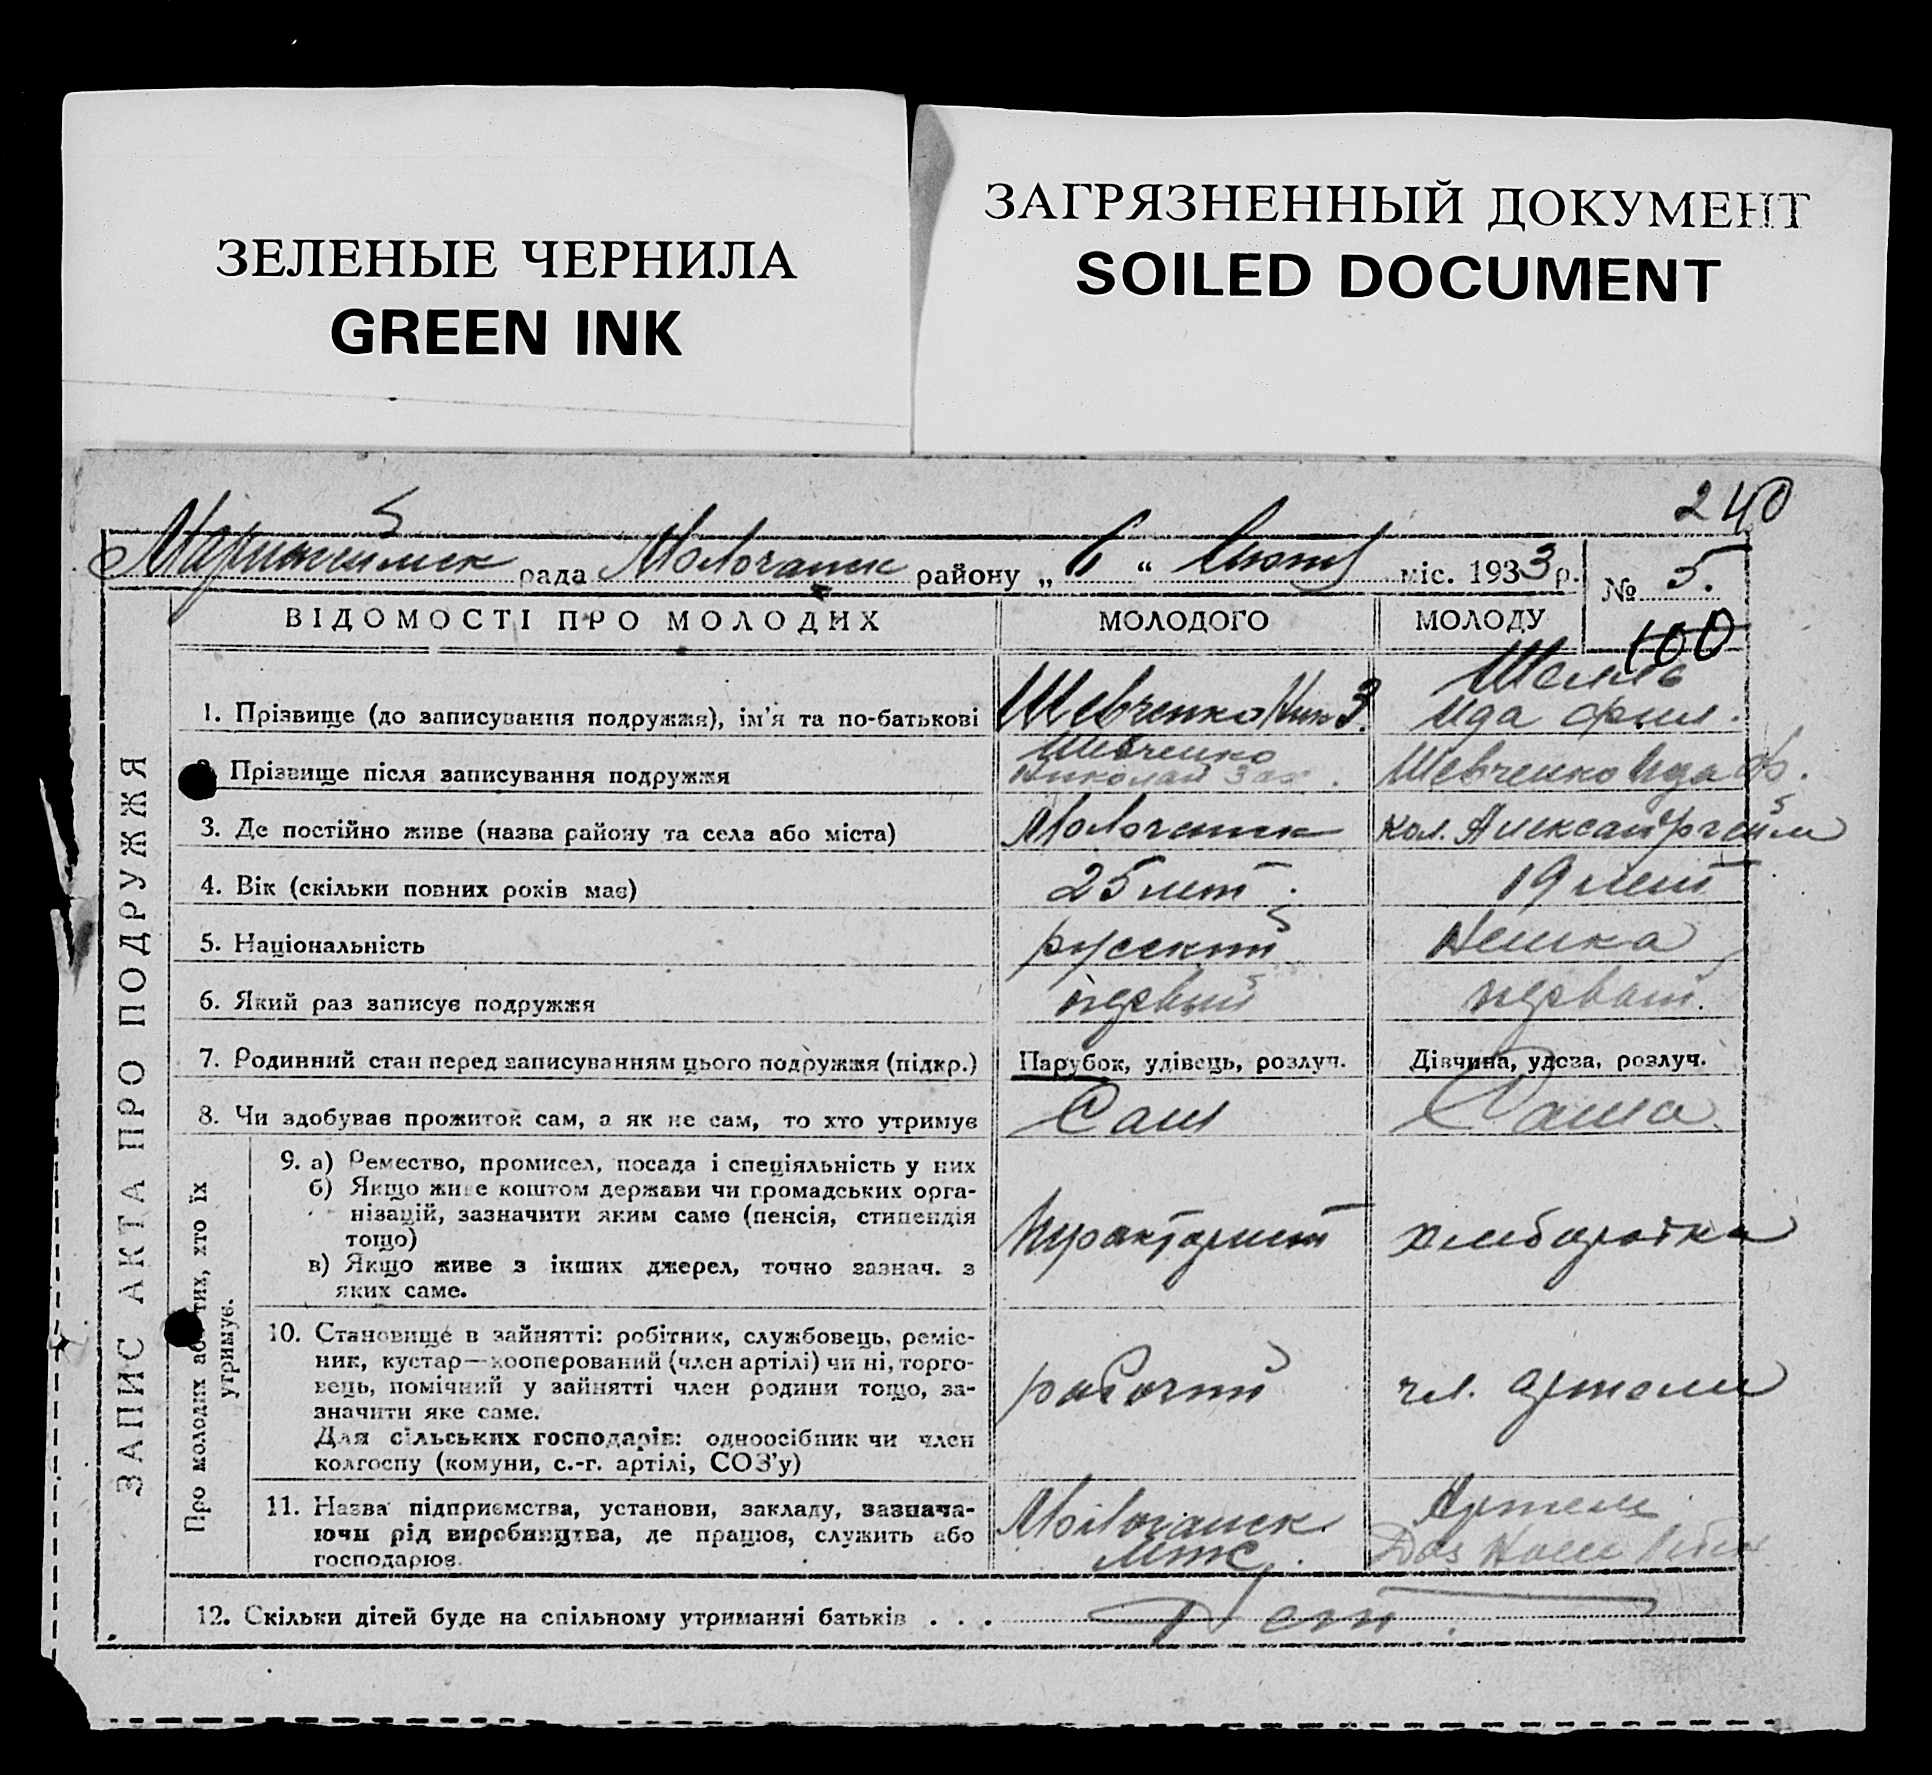 ЗЕЛЕНЫЕ ЧЕРНИЛА
GREEN INK
ЗАГРЯЗНЕННЫЙ ДОКУМЕНТ
SOILED DOCUMENT
240
рада Молочанск району „ 6 “ міс. 1933 р.
№ 5.
100
ЗАПИС АКТА ПРО ПОДРУЖЖЯ
ВІДОМОСТІ ПРО МОЛОДИХ МОЛОДОГО МОЛОДУ
1. Прізвище (до записування подружжя), ім'я та по-батькові Шевченко Ник З. Шелль
Ида Фил.
2. Прізвище після записування подружжя Шевченко
Николай Зах. Шевченко Ида Ф.
3. Де постійно живе (назва району та села або міста) Молочанск кол. Александргейм
4. Вік (скільки повних років має) 25 лет. 19 лет
5. Національність русский Немка
6. Який раз записує подружжя первый первый.
7. Родинний стан перед записуванням цього подружжя (підкр.) Парубок, удівець, розлуч. Дівчина, удова, розлуч.
8. Чи здобував прожиток сам, а як не сам, то хто утримує Сам Сама.
Про молодих або тих, хто їх
утримує.
9. а) Ремество, промисел, посада і спеціяльність у них
б) Якщо живе коштом держави чи громадських орга-
нізацій, зазначити яким саме (пенсія, стипендія
тощо)
в) Якщо живе з інших джерел, точно зазнач. з
яких саме.
Тракторист хлеборобка
10. Становище в зайнятті: робітник, службовець, реміс-
ник, кустар—кооперований (член артілі) чи ні, торго-
вець, помічний у зайнятті член родини тощо, за-
значити яке саме.
Для сільських господарів: одноосібник чи член
колгоспу (комуни, с.-г. артілі, СОЗ'у)
рабочий чл. артели
11. Назва підприємства, установи, закладу, зазнача-
ючи рід виробництва, де працює, служить або
господарює.
Молочанск
МТС. Артель
Das
12. Скільки дітей буде на спільному утриманні батьків . . . Нет.